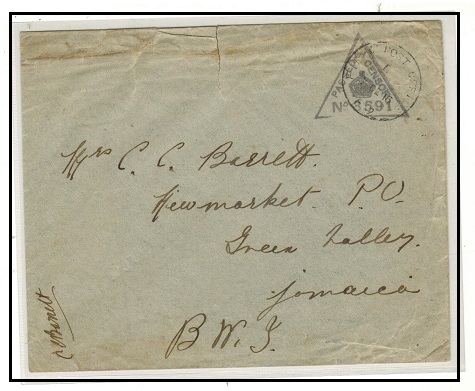 PASSED CENSOR
No 3591
Mrs C. C. Barrett.
Newmarket. P.O.
Green Valley.
Jamaica
B W. I.